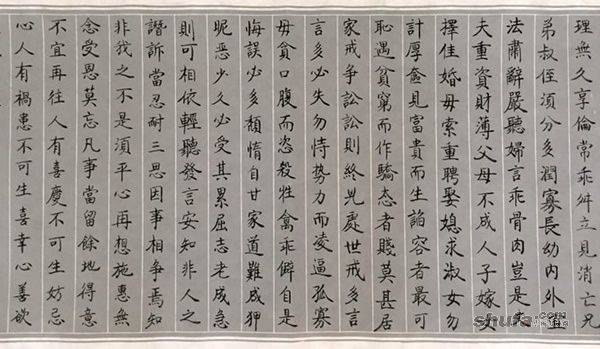 理無久享倫常乖舛立見消亡兄
弟叔侄須分多潤寡長幼內外宜
法肅辭嚴聽婦言乖骨肉豈是丈
夫重資財薄父母不成人子嫁女
擇佳婿毋索重聘娶媳求淑女勿
計厚奩見富貴而生諂容者最可
恥遇貧窮而作驕态者賤莫甚居
家戒爭訟訟則終凶處世戒多言
言多必失勿恃勢力而凌逼孤寡
毋貪口腹而恣殺牲禽乖僻自是
悔誤必多頹惰自甘家道難成狎
昵惡少久必受其累屈志老成急
則可相依輕聽發言安知非人之
譖訴當忍耐三思因事相爭焉知
非我之不是須平心再想施惠無
念受恩莫忘凡事當留餘地得意
不宜再往人有喜慶不可生妒忌
心人有禍患不可生喜幸心善欲